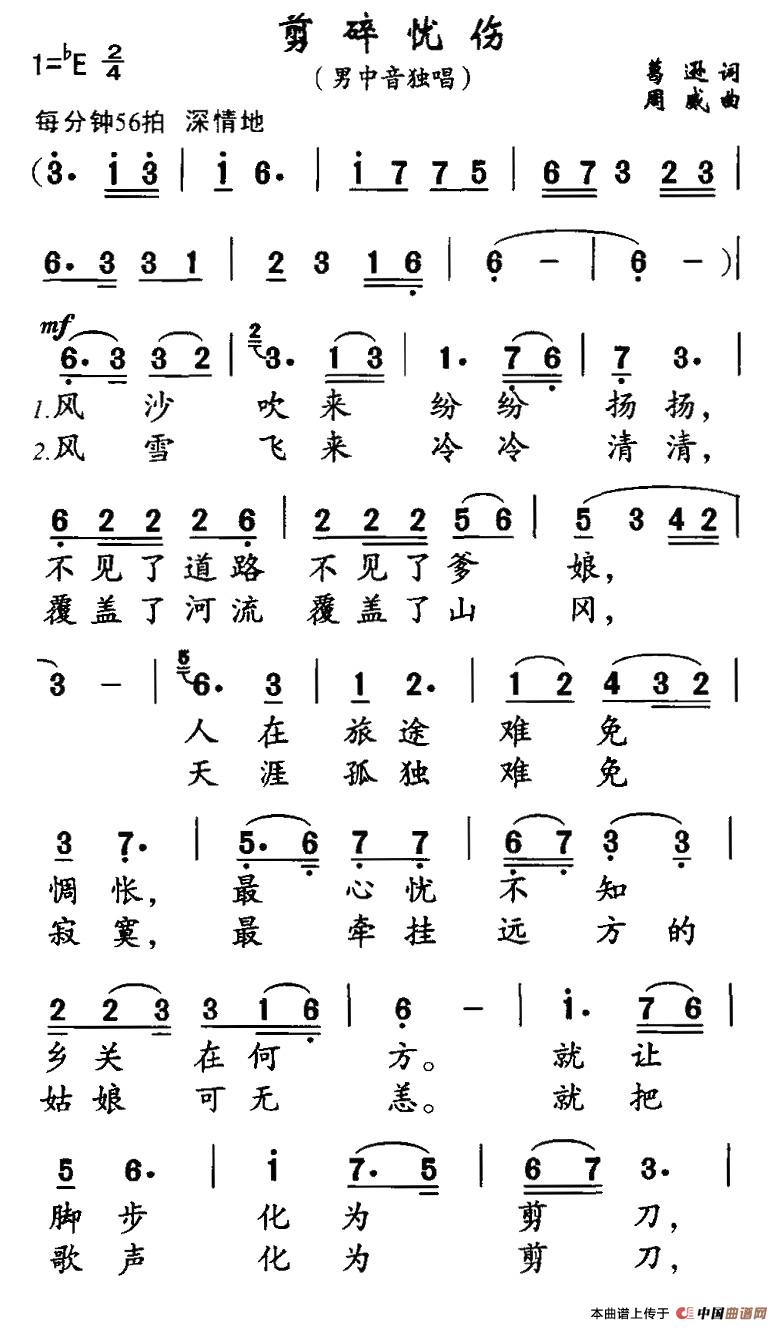 剪碎忧伤
1=♭E 2/4
（男中音独唱）
葛逊词
周威曲
每分钟56拍 深情地
(3. 1 3 | 1 6. | 1 7 7 5 | 6 7 3 2 3 |
6. 3 3 1 | 2 3 1 6 | 6 － | 6 － )|
mf
6. 3 3 2 | 2 3. 1 3 | 1. 7 6 | 7 3. |
1.风沙吹来纷纷扬扬，
2.风雪飞来冷冷清清，
6 2 2 2 6 | 2 2 2 5 6 | 5 3 4 2 |
不见了道路不见了爹娘，
覆盖了河流覆盖了山冈，
3 － | 5 6. 3 | 1 2. | 1 2 4 3 2 |
人在旅途难免
天涯孤独难免
3 7. | 5. 6 7 7 | 6 7 3 3 |
惆怅，最心忧不知
寂寞，最牵挂远方的
2 2 3 3 1 6 | 6 － | 1. 7 6 |
乡关在何方。就让
姑娘可无恙。就把
5 6. | 1 7. 5 | 6 7 3. |
脚步化为剪刀，
歌声化为剪刀，
本曲谱上传于 中国曲谱网